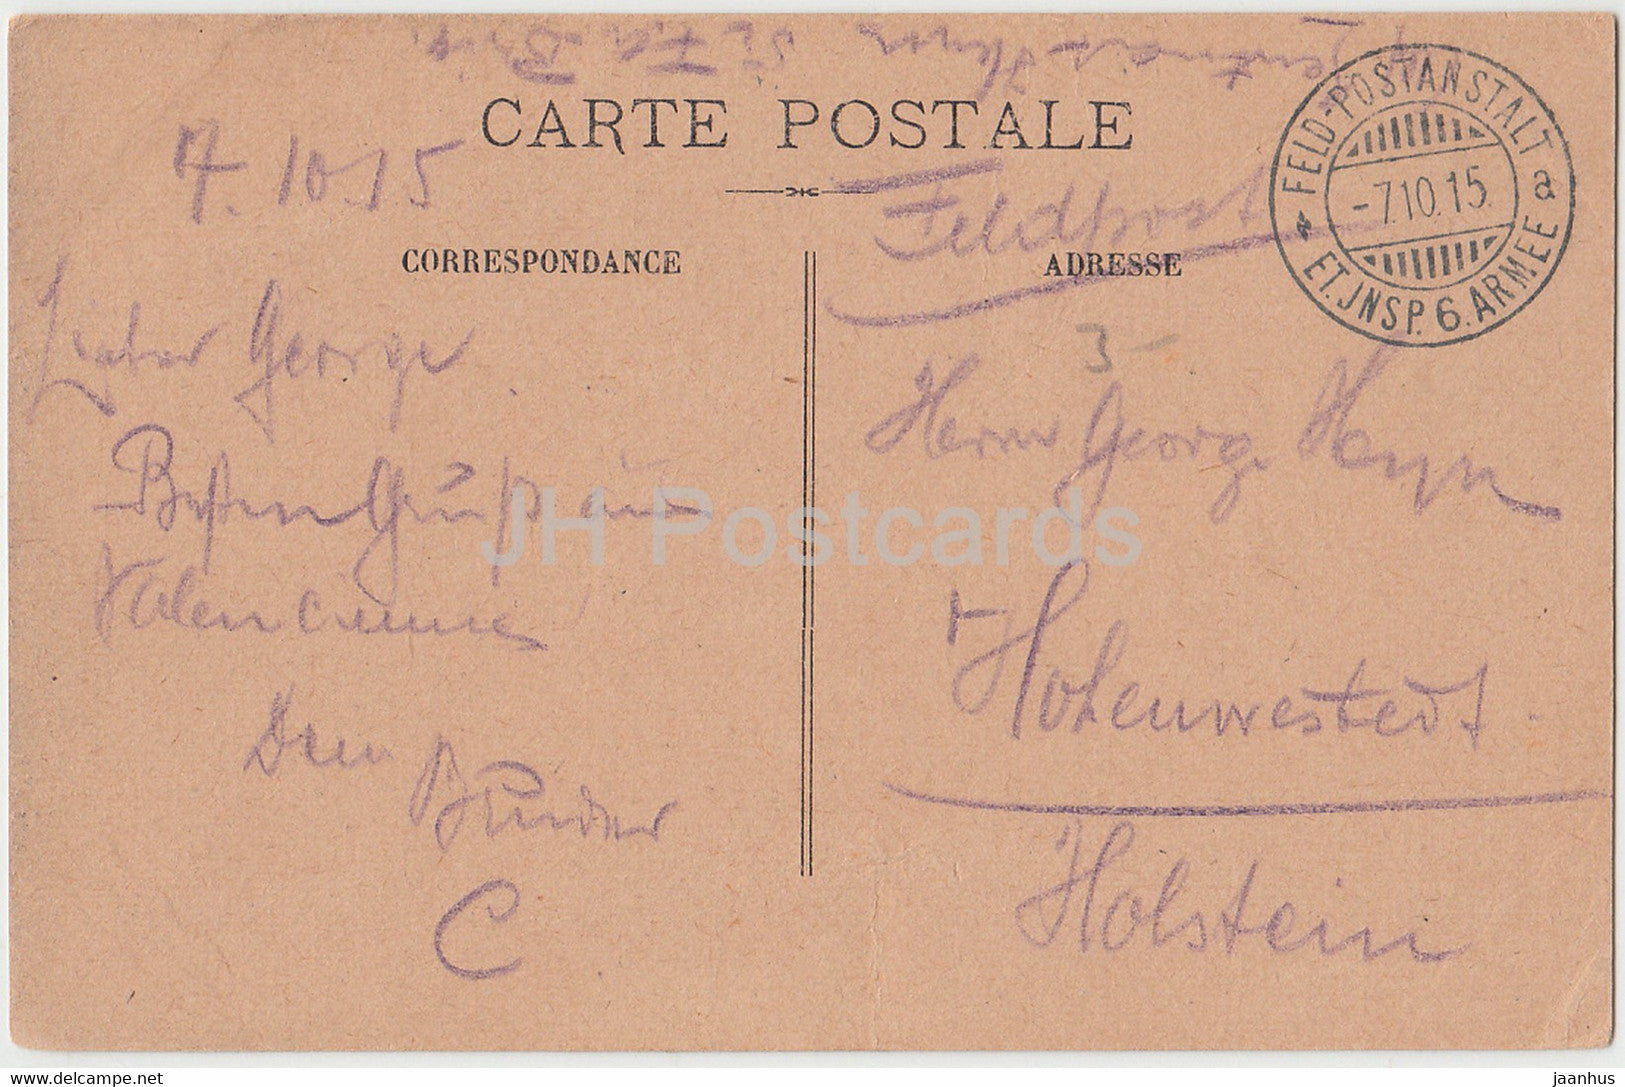 CARTE POSTALE
7.10.15
Feldpost
FELD-POSTANSTALT a
-7.10.15.
* ET. JNSP. 6. ARMEE
CORRESPONDANCE
ADRESSE
3-
Lieber George
Besten Gruß aus
Valenciennes
Dein
Bruder
C
Herrn Georg Heyn
Hohenwestedt
Holstein
JH Postcards
www.delcampe.net
jaanhus